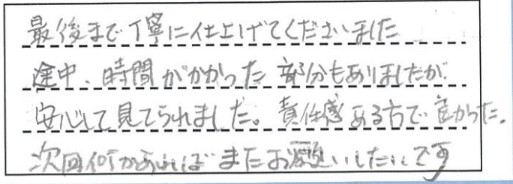 最後まで丁寧に仕上げてくださいました
途中、時間がかかった部分もありましたが、
安心して見てられました。責任感ある方で良かった。
次回何かあればまたお願いしたいです